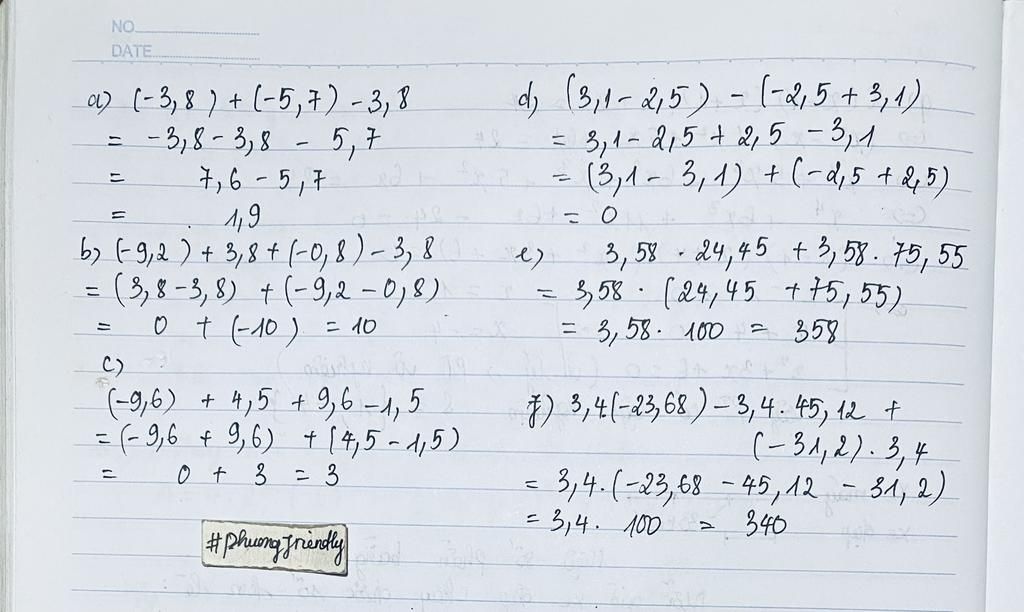 NO
DATE
a) (-3,8) + (-5,7) - 3,8
= -3,8 - 3,8 - 5,7
= 7,6 - 5,7
= 1,9
b) (-9,2) + 3,8 + (-0,8) - 3,8
= (3,8 - 3,8) + (-9,2 - 0,8)
= 0 + (-10) = 10
c)
(-9,6) + 4,5 + 9,6 - 1,5
= (-9,6 + 9,6) + (4,5 - 1,5)
= 0 + 3 = 3
#phuongfriendly
d) (3,1 - 2,5) - (-2,5 + 3,1)
= 3,1 - 2,5 + 2,5 - 3,1
= (3,1 - 3,1) + (-2,5 + 2,5)
= 0
e) 3,58 . 24,45 + 3,58 . 75,55
= 3,58 . (24,45 + 75,55)
= 3,58 . 100 = 358
f) 3,4(-23,68) - 3,4 . 45,12 +
(-31,2) . 3,4
= 3,4 . (-23,68 - 45,12 - 31,2)
= 3,4 . 100 = 340